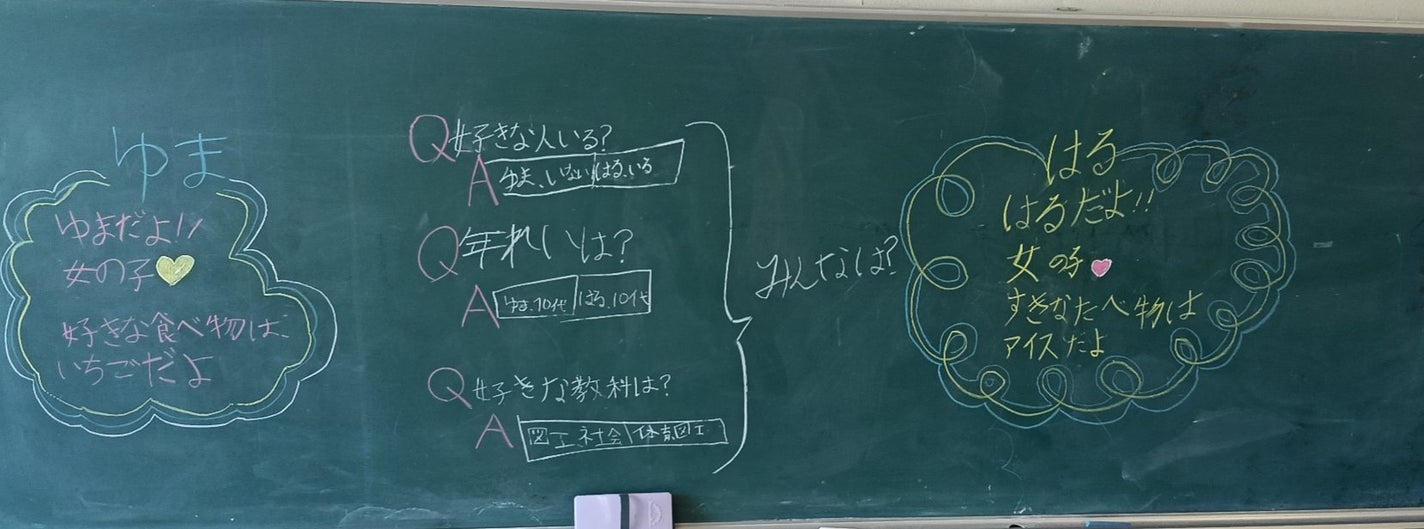 ゆま
ゆまだよ!!
女の子
好きな食べ物は、
いちごだよ
Q好きな人いる?
A ゆま、いない はる、いる
Q年れいは?
A ゆま、10代 はる、10代
Q好きな教科は?
A 図工 社会 体育図工
みんなは?
はる
はるだよ!!
女の子
すきなたべ物は
アイスだよ